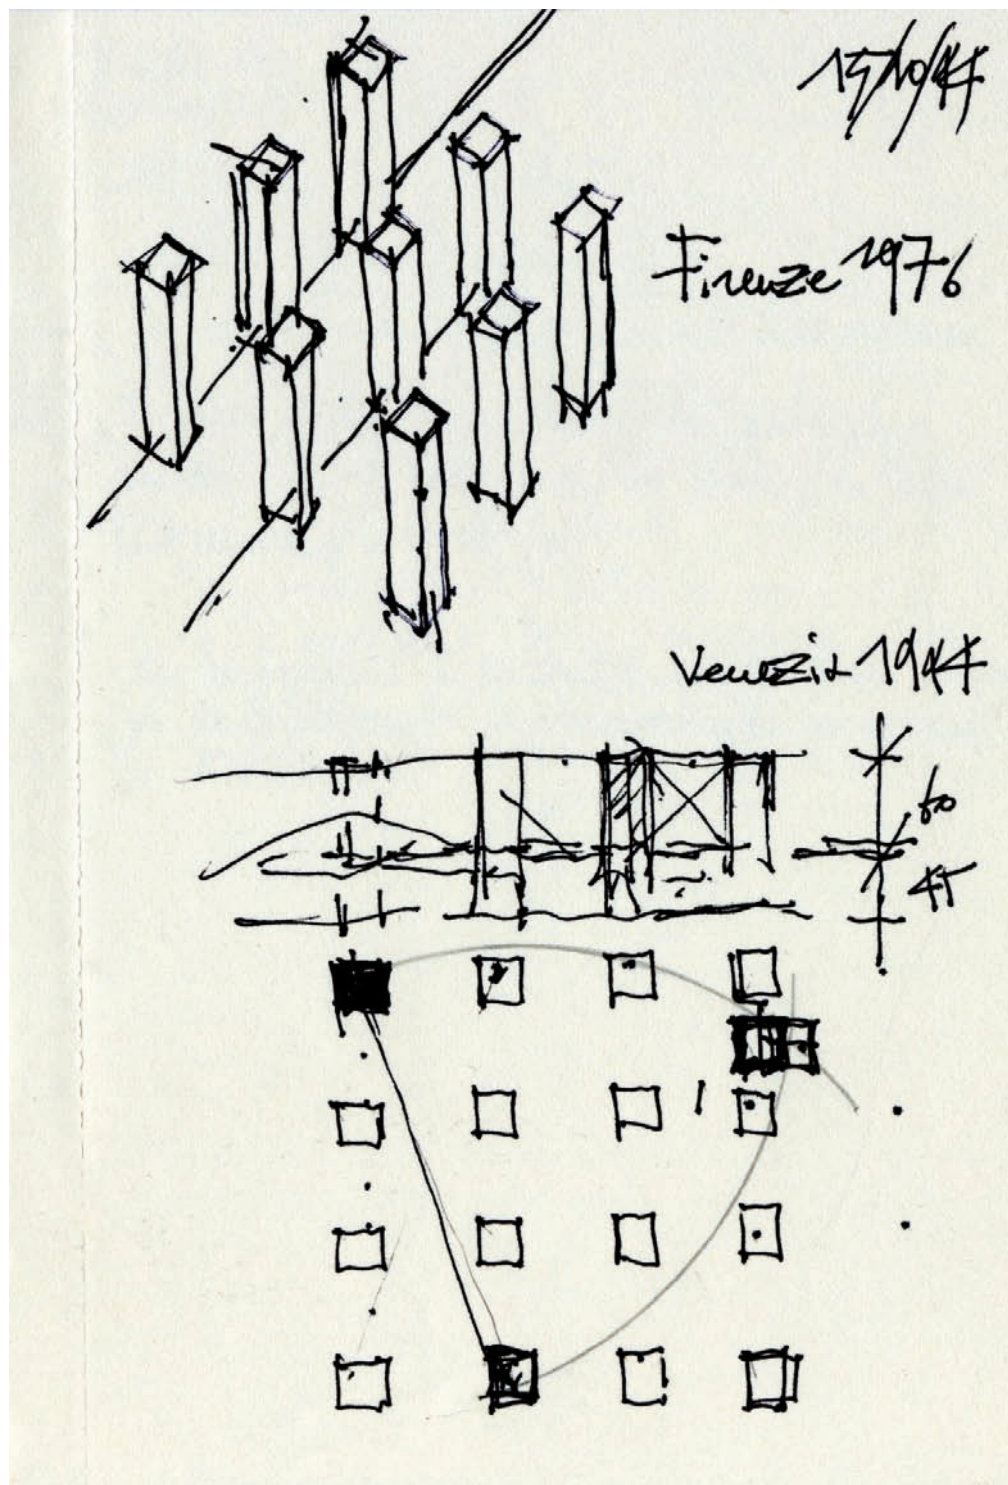 15/10/97
Firenze 1976
Venezia 1997
60
45